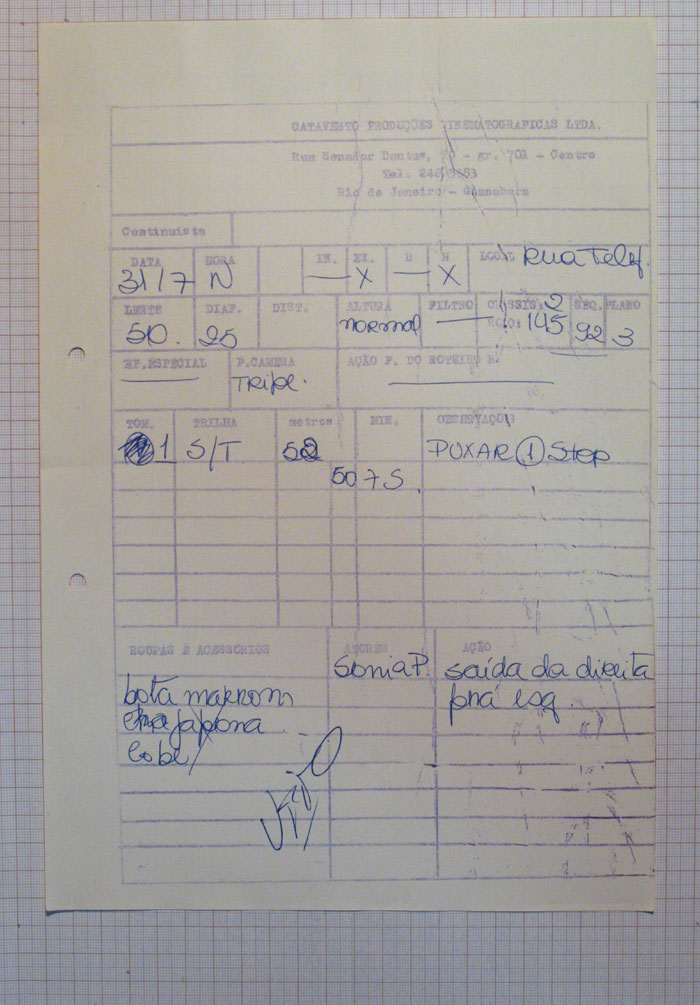 CATAVENTO PRODUÇÕES CINEMATOGRAFICAS LTDA.
Rua Senador Dantas, - gr. 701 - Centro
Tel.
Rio de Janeiro - Guanabara
Continuista
DATA HORA IN. EX. D N LOCAL Rua Telef.
31/7 N — X — X
LENTE DIAF. DIST. ALTURA FILTRO CHASSIS: 2 SEQ. PLANO
50. 25 normal — 145 92 3
EF. ESPECIAL P. CAMERA AÇÃO F. DO ROTEIRO R.
— Tripe. —
TOM. TRILHA metros MIN. OBSERVAÇÃO
1 S/T 50 PUXAR 1 Stop
50 7 S.
ROUPAS E ACESSÓRIOS ATORES AÇÃO
Sonia P. saída da direita
bota marrom prá esq.
japona